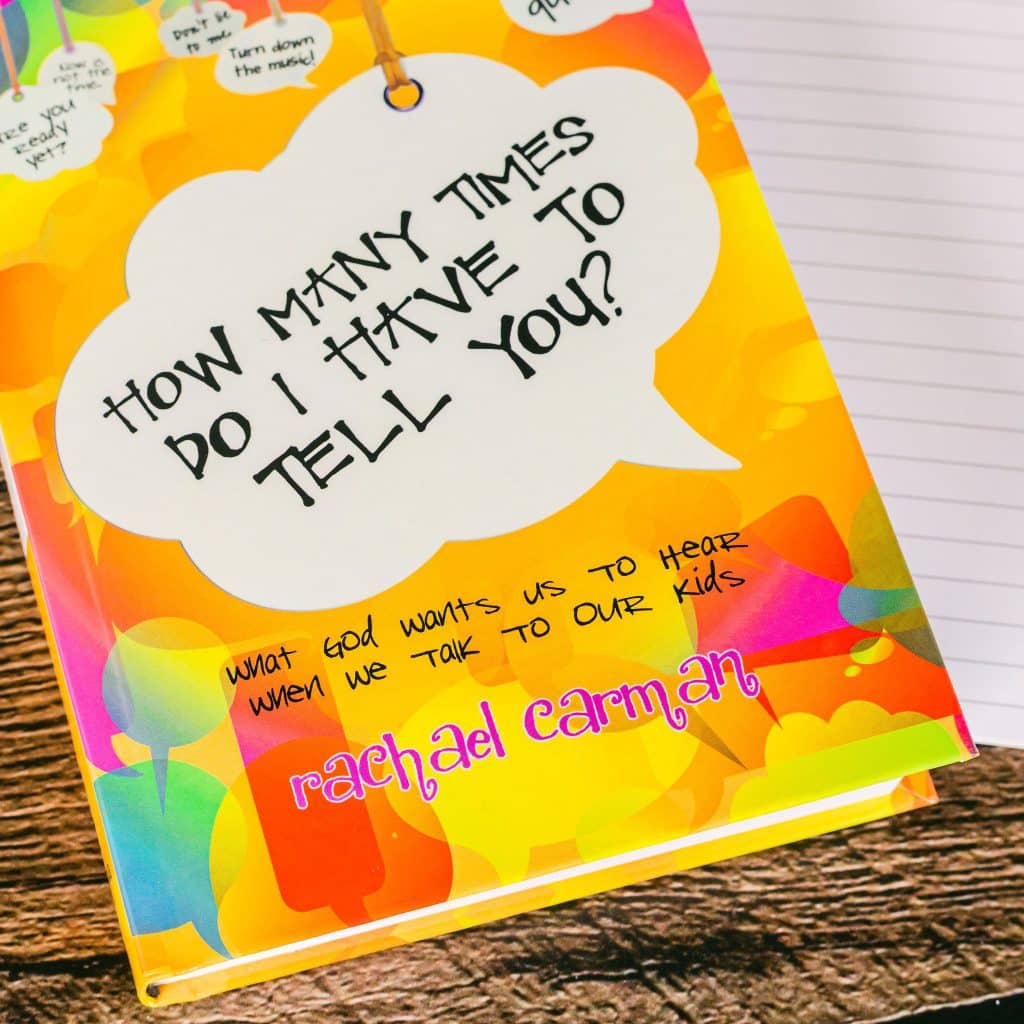 Don't lie
to me.
Turn down
the music!
Now is
not the
time.
are you
ready
yet?
HOW MANY TIMES
DO I HAVE TO
TELL YOU?
what God wants us to hear
when we talk to our kids
rachael carman